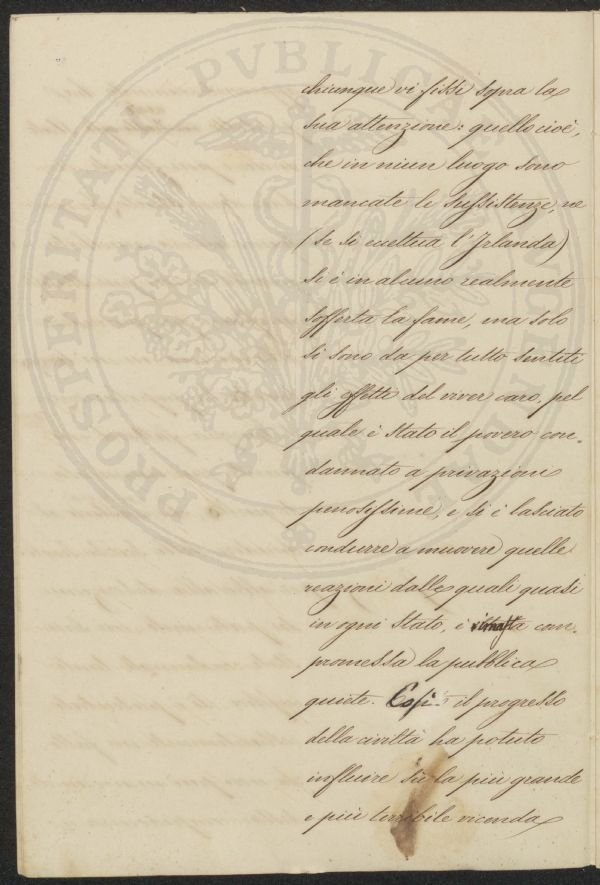 chiunque vi fissi sopra la
sua attenzione: quello cioè,
che in niun luogo sono
mancate le sussistenze, ne
(se si eccettua l'Irlanda)
si è in alcuno realmente
sofferta la fame, ma solo
si sono da per tutto sentiti
gli effetti del viver caro, pel
quale è stato il povero con-
dannato a privazioni
penosissime, e si è lasciato
condurre a muovere quelle
reazioni dalle quali quasi
in ogni Stato, è rimasta com-
promessa la pubblica
quiete. Così il progresso
della civiltà ha potuto
influire su la più grande
e più terribile vicenda
PROSPERITATI PVBLICAE AVGENDAE